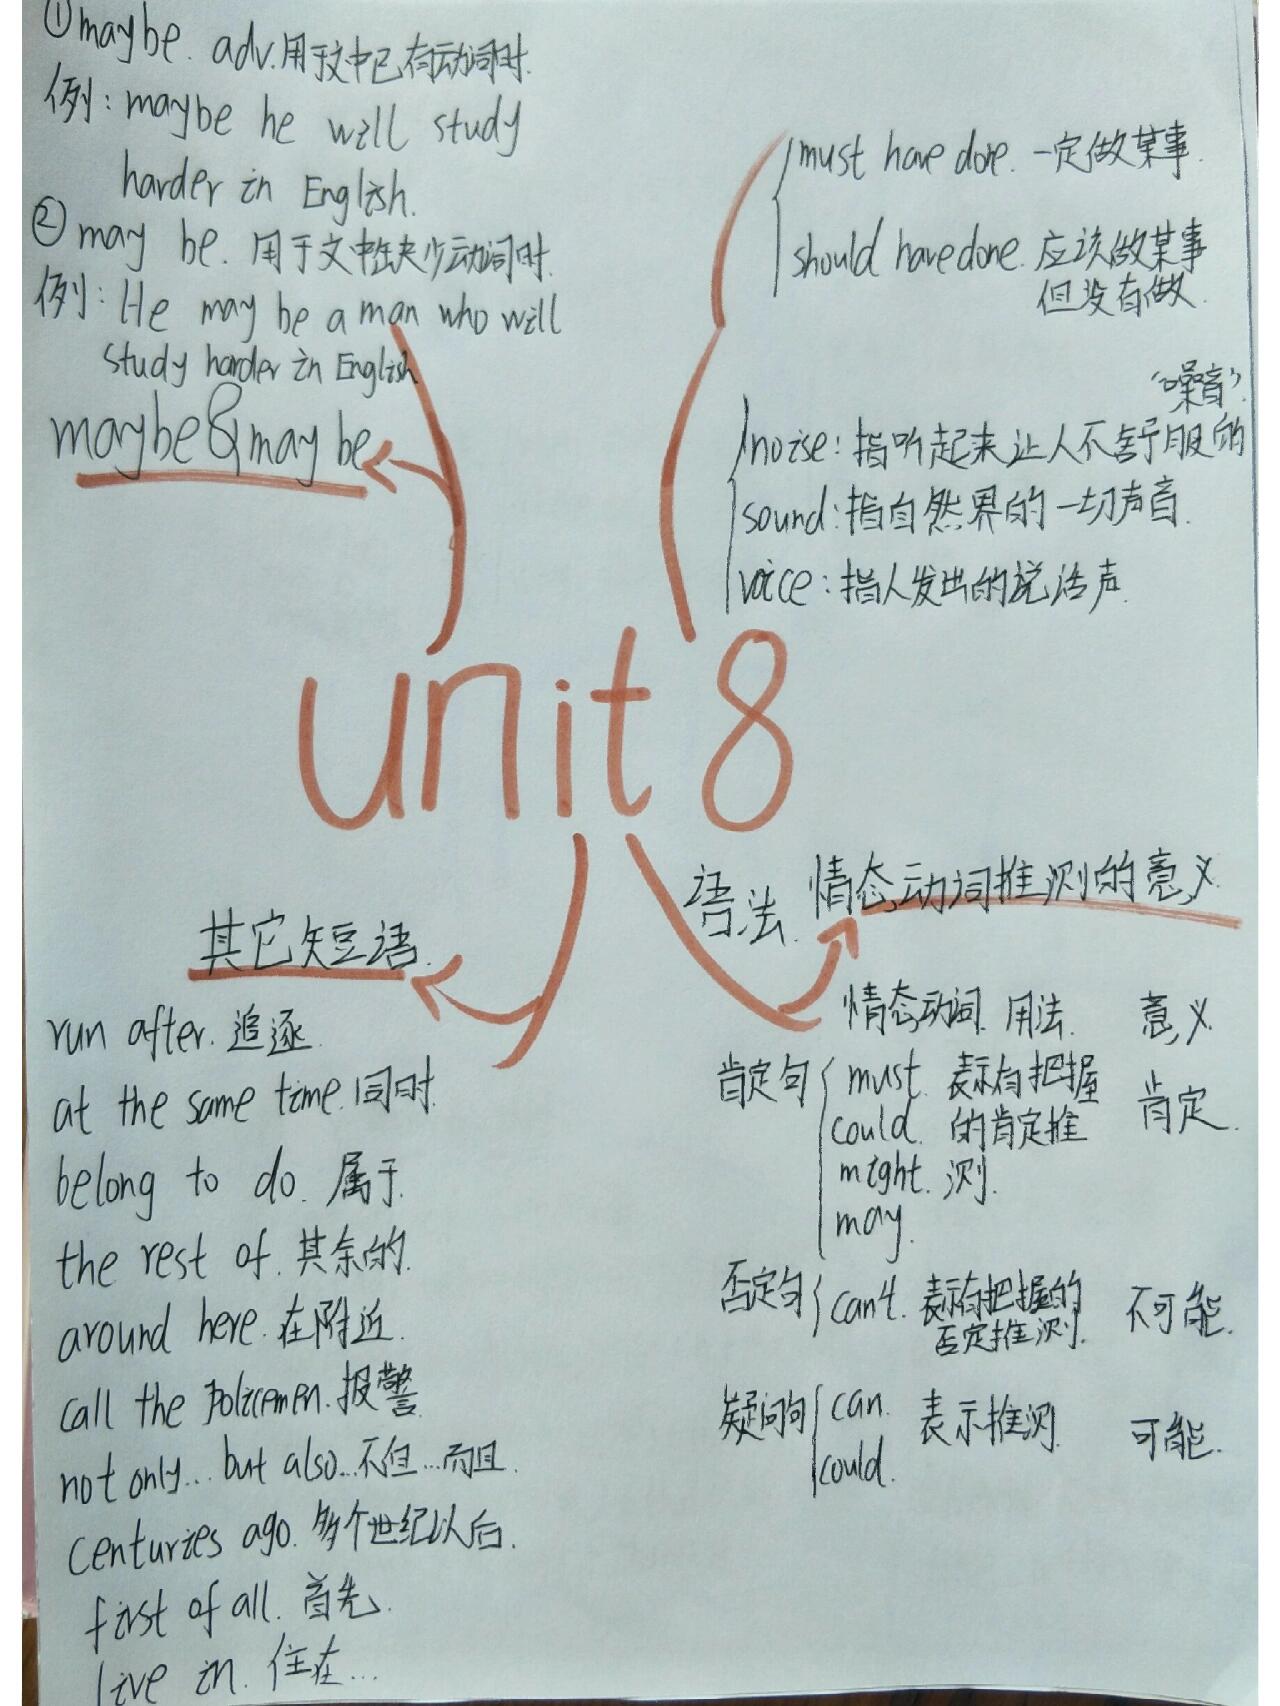 ①maybe. adv.用于文中已有动词时.
例: maybe he will study
harder in English.
②may be. 用于文中缺少动词时.
例: He may be a man who will
study harder in English
maybe&may be
must have done. 一定做某事.
should have done. 应该做某事
但没有做.
"噪音".
noise: 指听起来让人不舒服的
sound: 指自然界的一切声音.
voice: 指人发出的说话声.
unit 8
其它短语.
run after. 追逐.
at the same time. 同时.
belong to do. 属于.
the rest of. 其余的.
around here. 在附近.
call the policemen. 报警
not only... but also... 不但...而且.
centuries ago. 多个世纪以后.
first of all. 首先.
live in. 住在...
语法. 情态动词推测的意义.
情态动词. 用法. 意义.
肯定句 must. 表示有把握 肯定.
could. 的肯定推
might. 测.
may.
否定句 can't. 表示有把握的 不可能.
否定推测.
疑问句 can. 表示推测. 可能.
could.